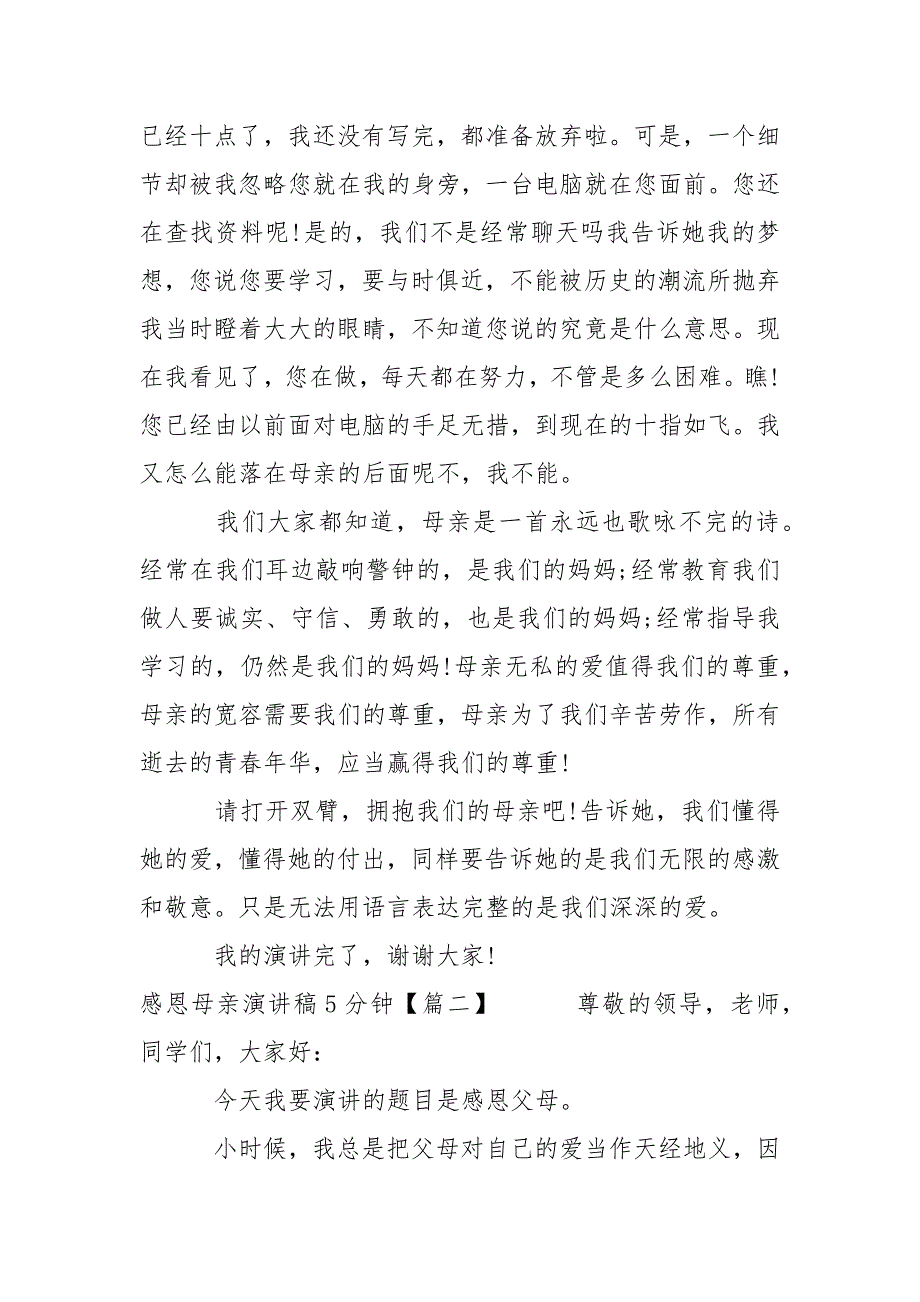 已经十点了，我还没有写完，都准备放弃啦。可是，一个细
节却被我忽略您就在我的身旁，一台电脑就在您面前。您还
在查找资料呢!是的，我们不是经常聊天吗我告诉她我的梦
想，您说您要学习，要与时俱近，不能被历史的潮流所抛弃
我当时瞪着大大的眼睛，不知道您说的究竟是什么意思。现
在我看见了，您在做，每天都在努力，不管是多么困难。瞧!
您已经由以前面对电脑的手足无措，到现在的十指如飞。我
又怎么能落在母亲的后面呢不，我不能。
我们大家都知道，母亲是一首永远也歌咏不完的诗。
经常在我们耳边敲响警钟的，是我们的妈妈;经常教育我们
做人要诚实、守信、勇敢的，也是我们的妈妈;经常指导我
学习的，仍然是我们的妈妈!母亲无私的爱值得我们的尊重，
母亲的宽容需要我们的尊重，母亲为了我们辛苦劳作，所有
逝去的青春年华，应当赢得我们的尊重!
请打开双臂，拥抱我们的母亲吧!告诉她，我们懂得
她的爱，懂得她的付出，同样要告诉她的是我们无限的感激
和敬意。只是无法用语言表达完整的是我们深深的爱。
我的演讲完了，谢谢大家!
感恩母亲演讲稿5分钟【篇二】 尊敬的领导，老师，
同学们，大家好：
今天我要演讲的题目是感恩父母。
小时候，我总是把父母对自己的爱当作天经地义，因